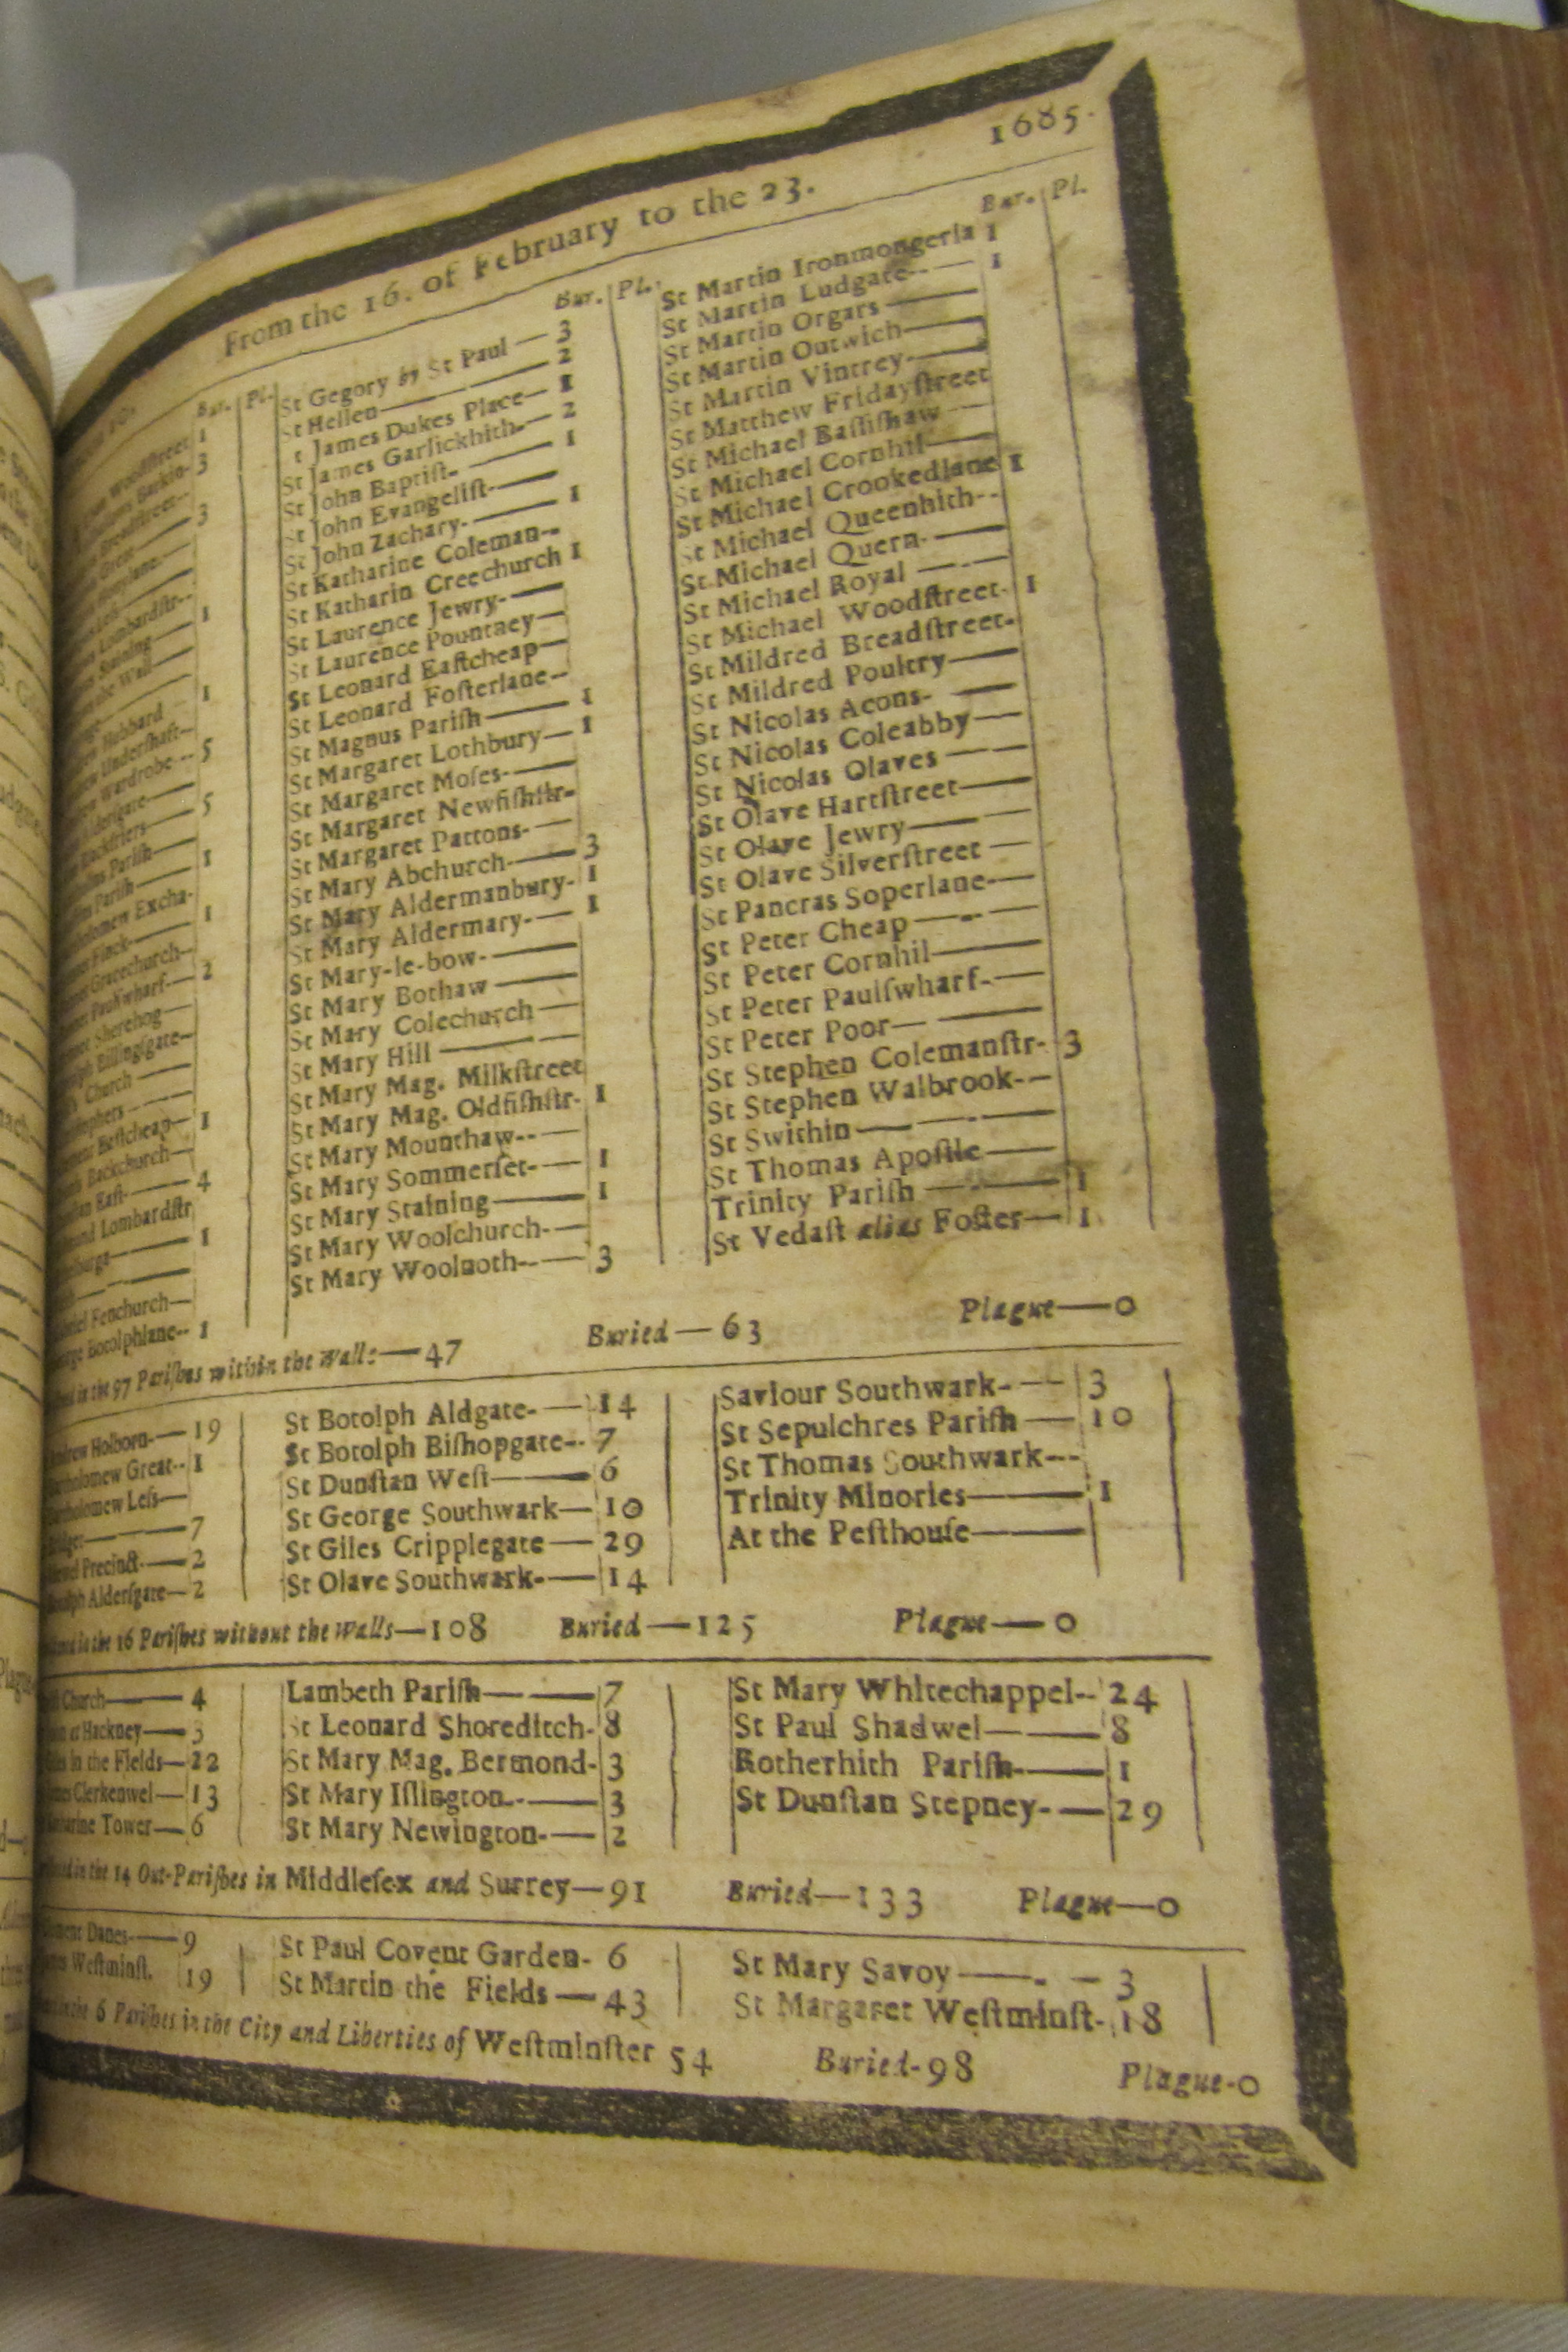 1685.
From the 16. of February to the 23.
Bur. Pl.
Woodstreet 1
Barkin- 3
Breadstreet--
3
Lombardstr--
Staining 1
the Wall
1
Hubbard
Undershaft-
Wardrobe--- 5
5
Parish
Parish 1
Excha-
Finck- 1
Gracechurch-
Paulswharf- 2
Sherehog
Billingsgate-
Church
Eastcheap- 1
Backchurch
East- 4
Lombardstr
1
Fenchurch
Botolphlane-- 1
Bur. Pl.
St Gegory by St Paul — 3
St Hellen — 2
t James Dukes Place — 1
St James Garlickhith- — 2
St John Baptist- — 1
St John Evangelist- —
St John Zachary- — 1
St Katharine Coleman--
St Katharin Creechurch 1
St Laurence Jewry- —
St Laurence Pountney —
St Leonard Eastcheap —
St Leonard Fosterlane --
St Magnus Parish — 1
St Margaret Lothbury — 1
St Margaret Moses- —
St Margaret Newfishstr-
St Margaret Pattons- —
St Mary Abchurch — 3
St Mary Aldermanbury- 1
St Mary Aldermary- — 1
St Mary-le-bow- —
St Mary Bothaw —
St Mary Colechurch —
St Mary Hill —
St Mary Mag. Milkstreet
St Mary Mag. Oldfishstr- 1
St Mary Mounthaw-- —
St Mary Sommerset- — 1
St Mary Staining — 1
St Mary Woolchurch- —
St Mary Woolnoth-- — 3
Bur. Pl.
St Martin Ironmongerla 1
St Martin Ludgate-- — 1
St Martin Orgars —
St Martin Outwich —
St Martin Vintrey- —
St Matthew Fridaystreet
St Michael Bassishaw —
St Michael Cornhil —
St Michael Crookedlane 1
St Michael Queenhith--
St Michael Quern- —
St Michael Royal —
St Michael Woodstreet- 1
St Mildred Breadstreet-
St Mildred Poultry —
St Nicolas Acons- —
St Nicolas Coleabby —
St Nicolas Olaves —
St Olave Hartstreet —
St Olave Jewry —
St Olave Silverstreet —
St Pancras Soperlane- —
St Peter Cheap —
St Peter Cornhil —
St Peter Paulswharf- —
St Peter Poor —
St Stephen Colemanstr- 3
St Stephen Walbrook- —
St Swithin —
St Thomas Apostle —
Trinity Parish — 1
St Vedast alias Foster — 1
in the 97 Parishes within the Walls — 47 Buried — 63 Plague — 0
Andrew Holborn- — 19
Bartholomew Great-- 1
Bartholomew Less —
7
Precinct- — 2
Botolph Aldersgate — 2
St Botolph Aldgate- — 14
St Botolph Bishopgate-- 7
St Dunstan West — 6
St George Southwark — 10
St Giles Cripplegate — 29
St Olave Southwark- — 14
Saviour Southwark- — 3
St Sepulchres Parish — 10
St Thomas Southwark---
Trinity Minories — 1
At the Pesthouse —
in the 16 Parishes without the Walls — 108 Buried — 125 Plague — 0
Church — 4
at Hackney — 3
in the Fields — 22
Clerkenwel — 13
Tower — 6
Lambeth Parish — 7
St Leonard Shoreditch- 8
St Mary Mag. Bermond- 3
St Mary Islington- — 3
St Mary Newington- — 2
St Mary Whitechappel-- 24
St Paul Shadwel — 8
Rotherhith Parish- — 1
St Dunstan Stepney- — 29
in the 14 Out-Parishes in Middlesex and Surrey — 91 Buried — 133 Plague — 0
Danes- — 9
Westminst. 19
St Paul Covent Garden- 6
St Martin the Fields — 43
St Mary Savoy — 3
St Margaret Westminst- 18
in the 6 Parishes in the City and Liberties of Westminster 54 Buried-98 Plague-0